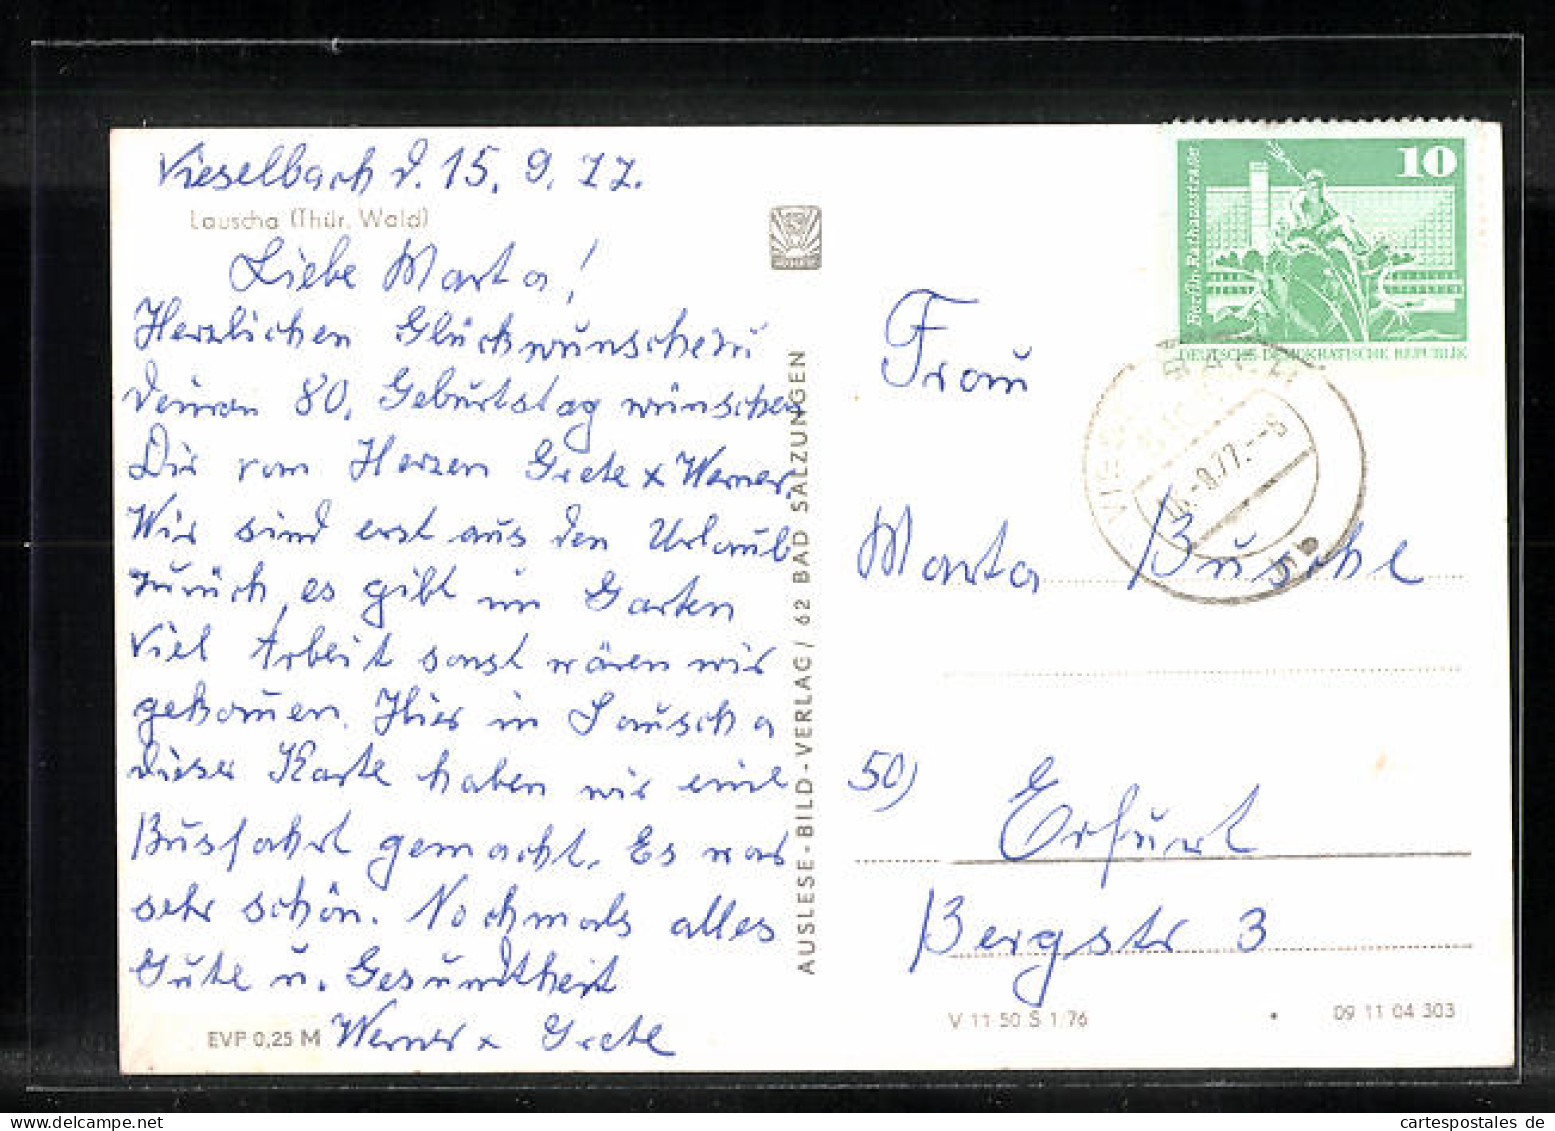 Vieselbach d. 15. 9. 77.
Lauscha (Thür. Wald)
Liebe Marta!
Herzlichen Glückwunsch zu
Deinen 80. Geburtstag wünschen
Dir vom Herzen Grete x Werner.
Wir sind erst aus den Urlaub
zurück, es gibt im Garten
viel Arbeit sonst wären wir
gekommen. Hier in Lauscha
dieser Karte haben wir eine
Busfahrt gemacht. Es war
sehr schön. Nochmals alles
Gute u. Gesundtheit
Werner x Grete
EVP 0,25 M
AUSLESE-BILD-VERLAG / 62 BAD SALZUNGEN
10
Berlin, Rathausstraße
DEUTSCHE DEMOKRATISCHE REPUBLIK
.-9.77.--8
Frau
Marta
50) Erfurt
Bergstr 3
V 11 50 S 1/76
09 11 04 303
cartespostales de